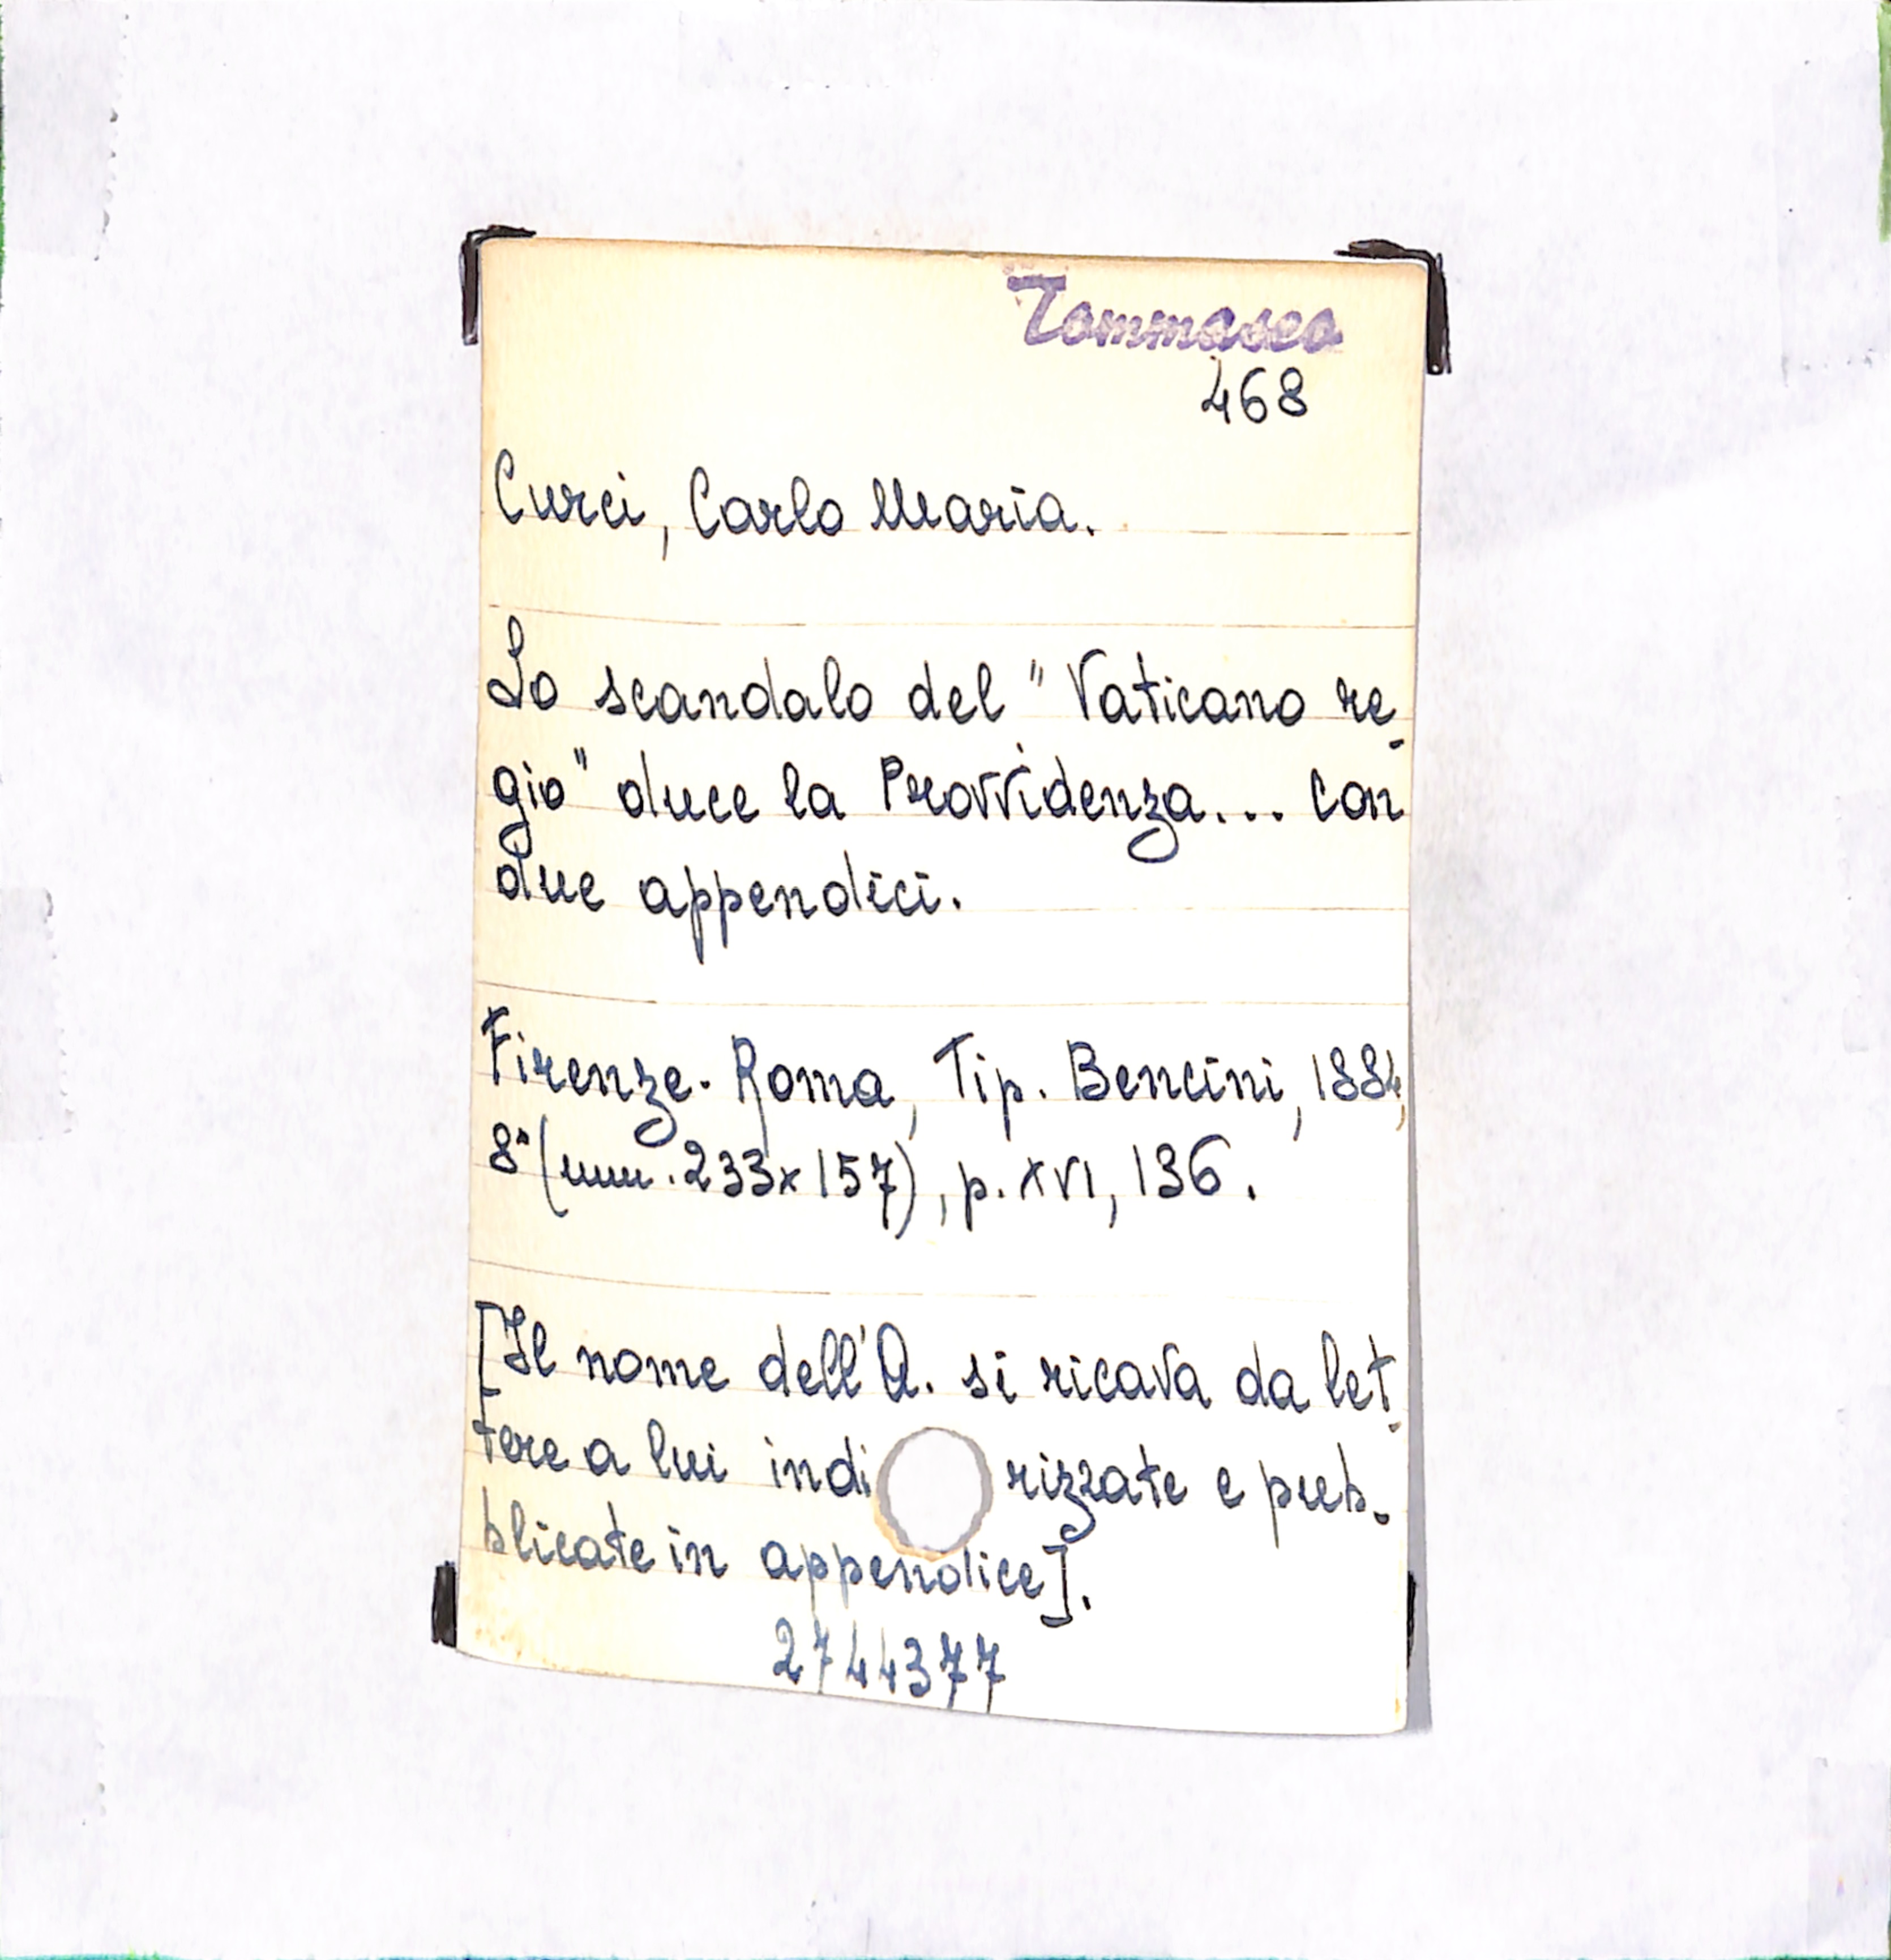 Tommaseo
468
Curci, Carlo Maria.
Lo scandalo del "Vaticano re-
gio" duce la Provvidenza... con
due appendici.
Firenze-Roma, Tip. Bencini, 1884,
8° (mm. 233x157), p. XVI, 136.
[Il nome dell'A. si ricava da let-
tere a lui indi rizzate e pub-
blicate in appendice].
2744377